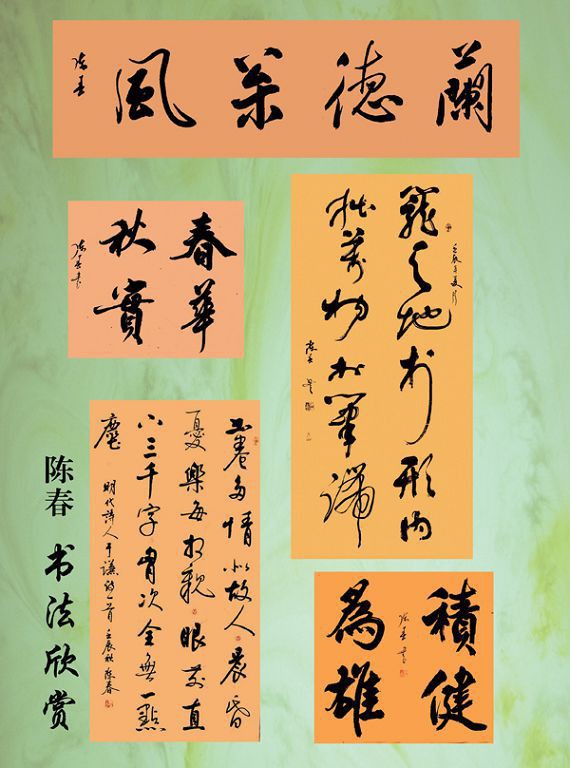 蘭德風
陈春
春華
秋實
陈春书
壬辰年夏月
籠天地於形内
挫萬物於筆端
陈春
書卷多情似故人晨昏
憂樂每相親眼前直
下三千字胸次全無一點
塵
明代詩人于謙詩一首壬辰秋陈春
積健
為雄
陈春书
陈春 书法欣赏